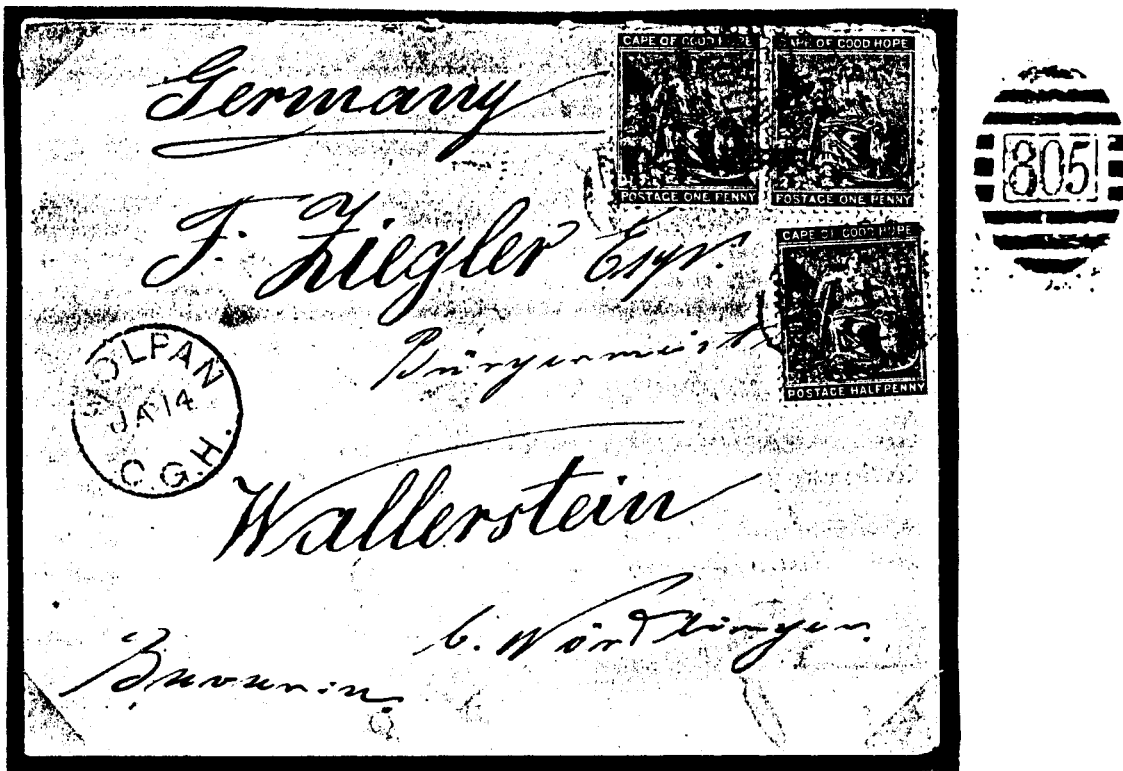 Germany
CAPE OF GOOD HOPE
POSTAGE ONE PENNY
CAPE OF GOOD HOPE
POSTAGE ONE PENNY
805
F. Ziegler Esqr.
Bürgermeist
CAPE OF GOOD HOPE
POSTAGE HALFPENNY
OLPAN
JA 14
C.G.H.
Wallerstein
b. Nördlingen.
Bavaria.